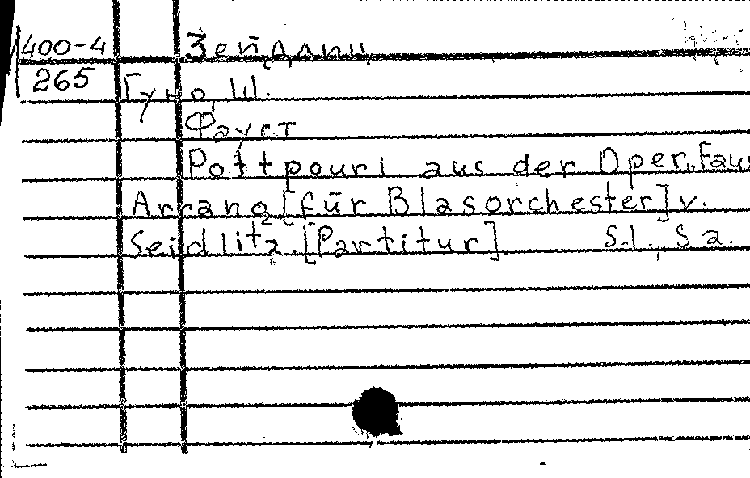 400-4
265
Зейдлиц
Гуно, Ш.
Фауст
Pottpouri aus der Oper „Fau
Arrang [für Blasorchester] v.
Seidlitz. [Partitur] S.l., S.a.